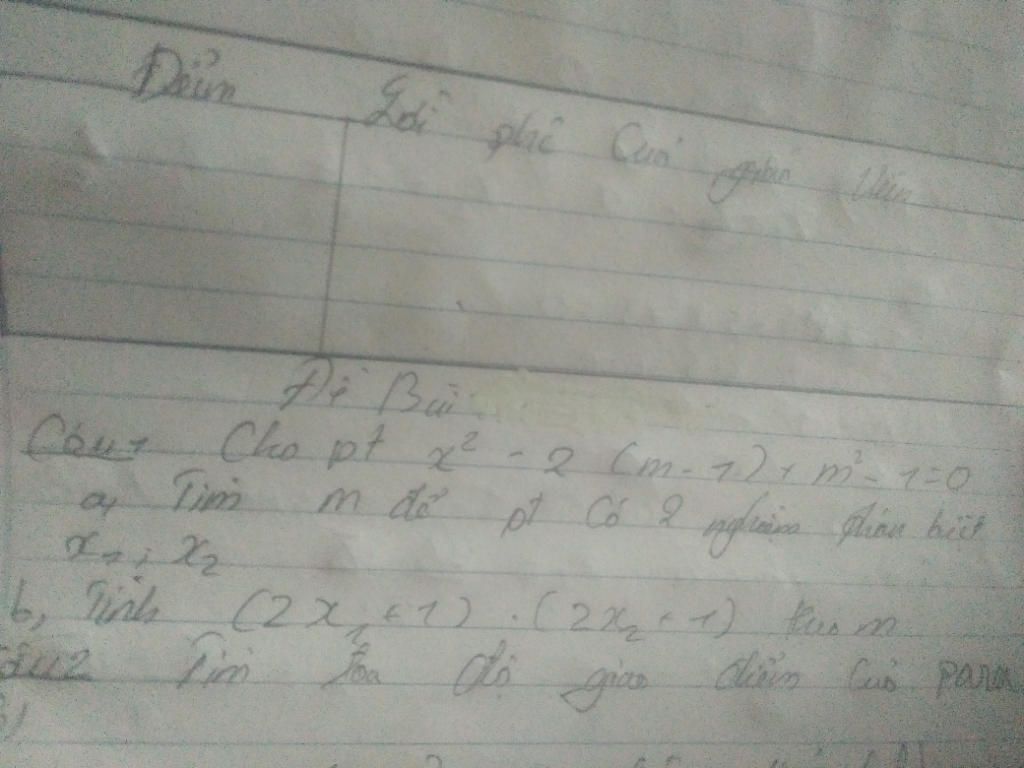 Điểm Lời phê của giáo viên
Đề Bài
Câu 1 Cho pt x² - 2 (m - 1) + m² - 1 = 0
a, Tìm m để pt có 2 nghiệm phân biệt
x₁, x₂
b, Tính (2x₁ + 1) . (2x₂ + 1) theo m
Câu 2 Tìm tọa độ giao điểm của para